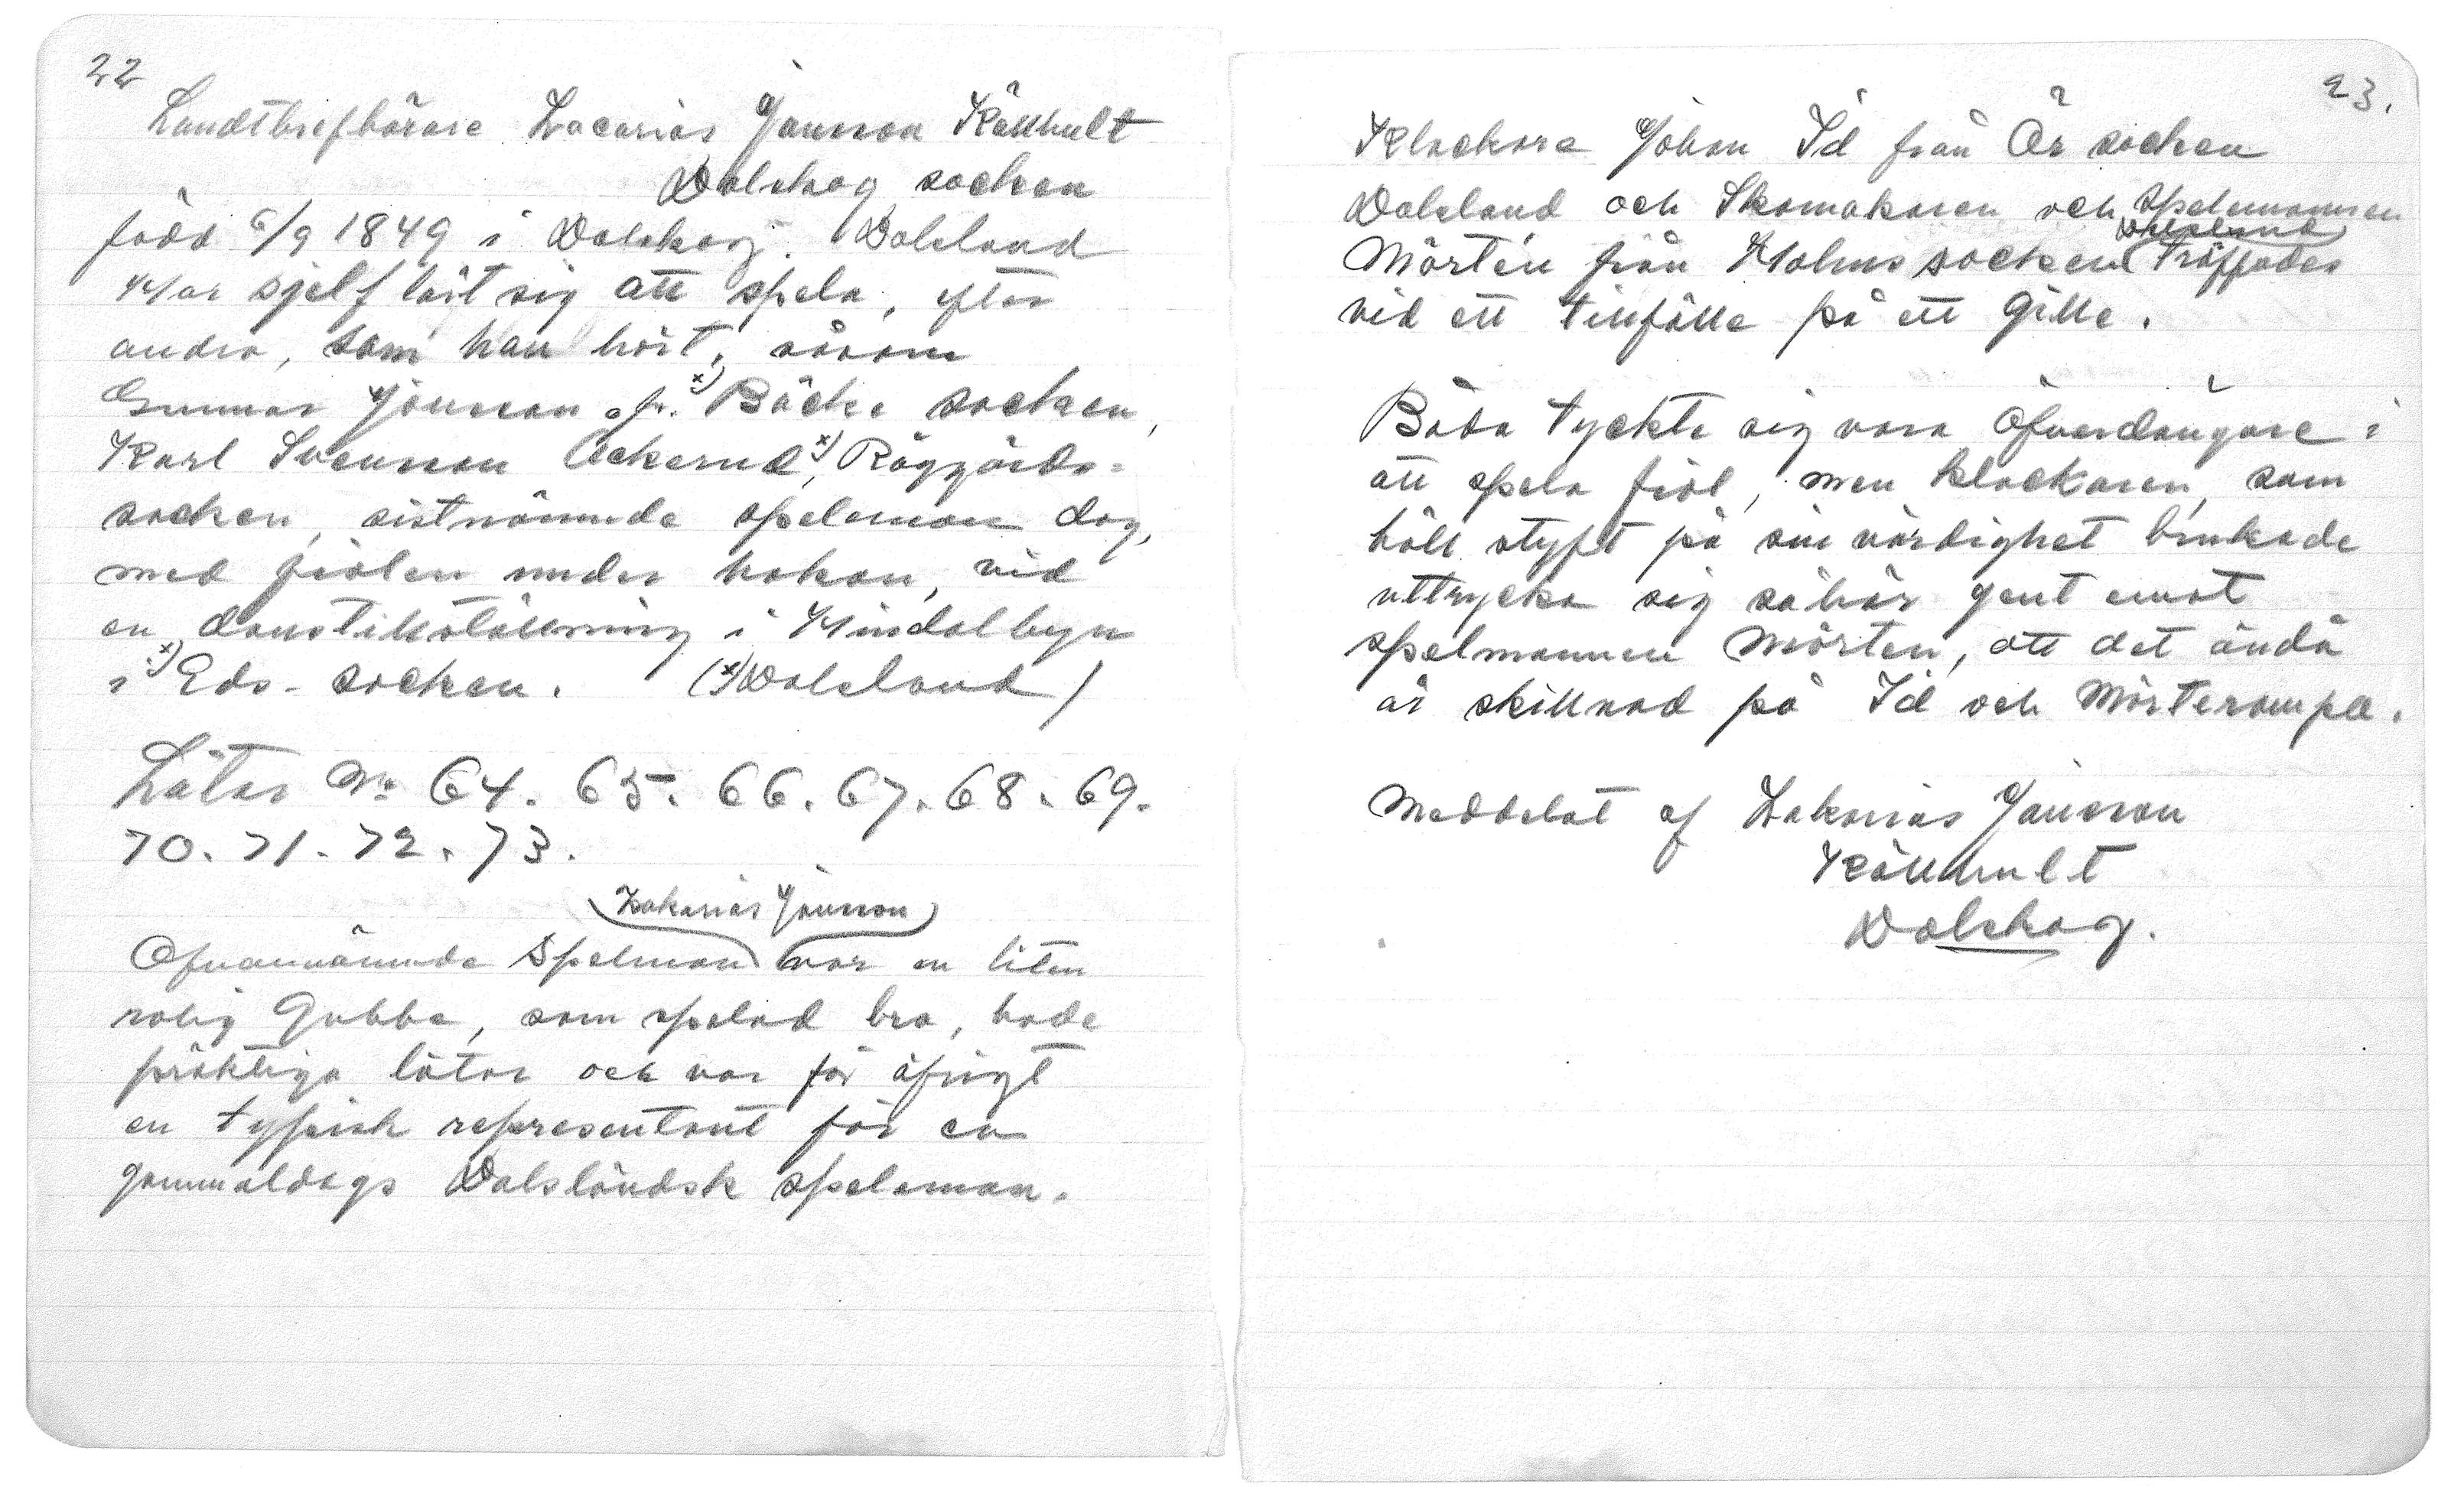 22
Landtbrefbärare Zacarias Jansson Källhult
Dalskog socken
född 6/9 1849 i Dalskog. Dalsland
Har sjelf lärt sig att spela, efter
andra, som han hört, såsom
Gunnar Jönsson fr. x) Bäcke socken,
Karl Svensson Ackerud, x) Röggärds-
socken, sistnämnde speleman dog,
med fiolen under hakan, vid
en danstillställning i Hindalbyn
i x) Eds-socken. (x) Dalsland)
Låtar No 64. 65. 66. 67. 68. 69.
70. 71. 72. 73.
Zakarias Jansson
Ofvannämnda Spelman var en liten
rolig Gubbe, som spelad bra, hade
präktiga låtar och var för öfrigt
en typisk representant för en
gammaldags Dalsländsk speleman.
23.
Klockare Johan Id från Ör socken
Dalsland och Skomakaren och Spelemannen
Dalsland
Mörten från Holms socken träffades
vid ett tillfälle på ett Gille.
Båda tyckte sig vara Öfverdängare i
att spela fiol, men klockaren, som
höll styft på sin värdighet brukade
uttrycka sig såhär gent emot
spelmannen Mörten, att det ändå
är skillnad på Id och Mörterumpa.
Meddelat af Zakarias Jansson
Källhult
Dalskog.